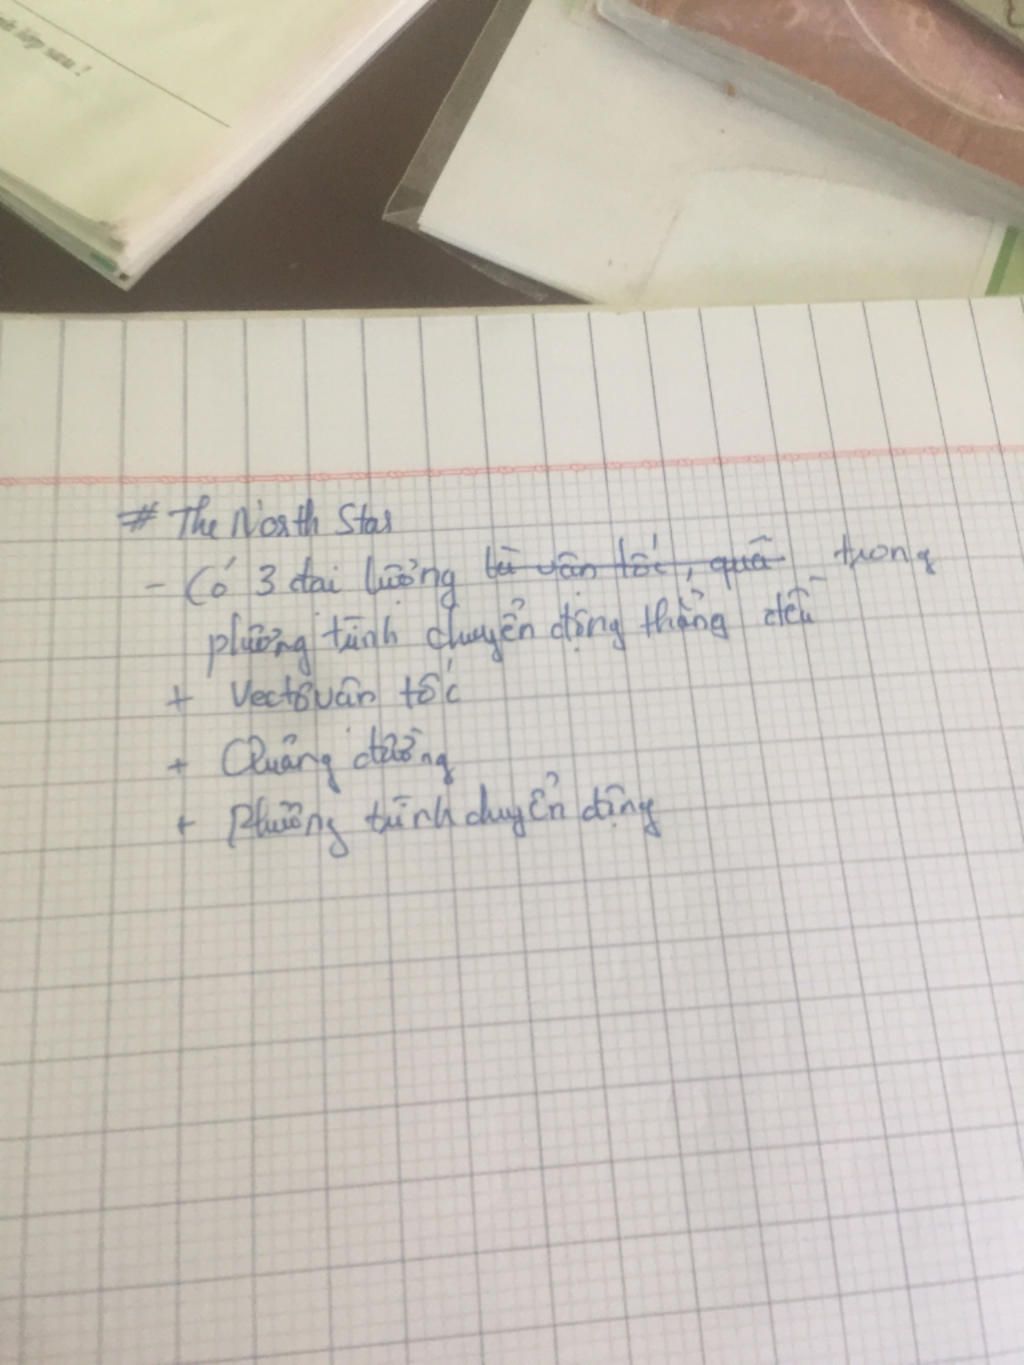 lớp sau!
# The North Star
- Có 3 đai lượng là vận tốc, quã trong
phương trình chuyển động thẳng đều
+ Vectơ vân tốc
+ Quãng đường
+ Phương trình chuyển động